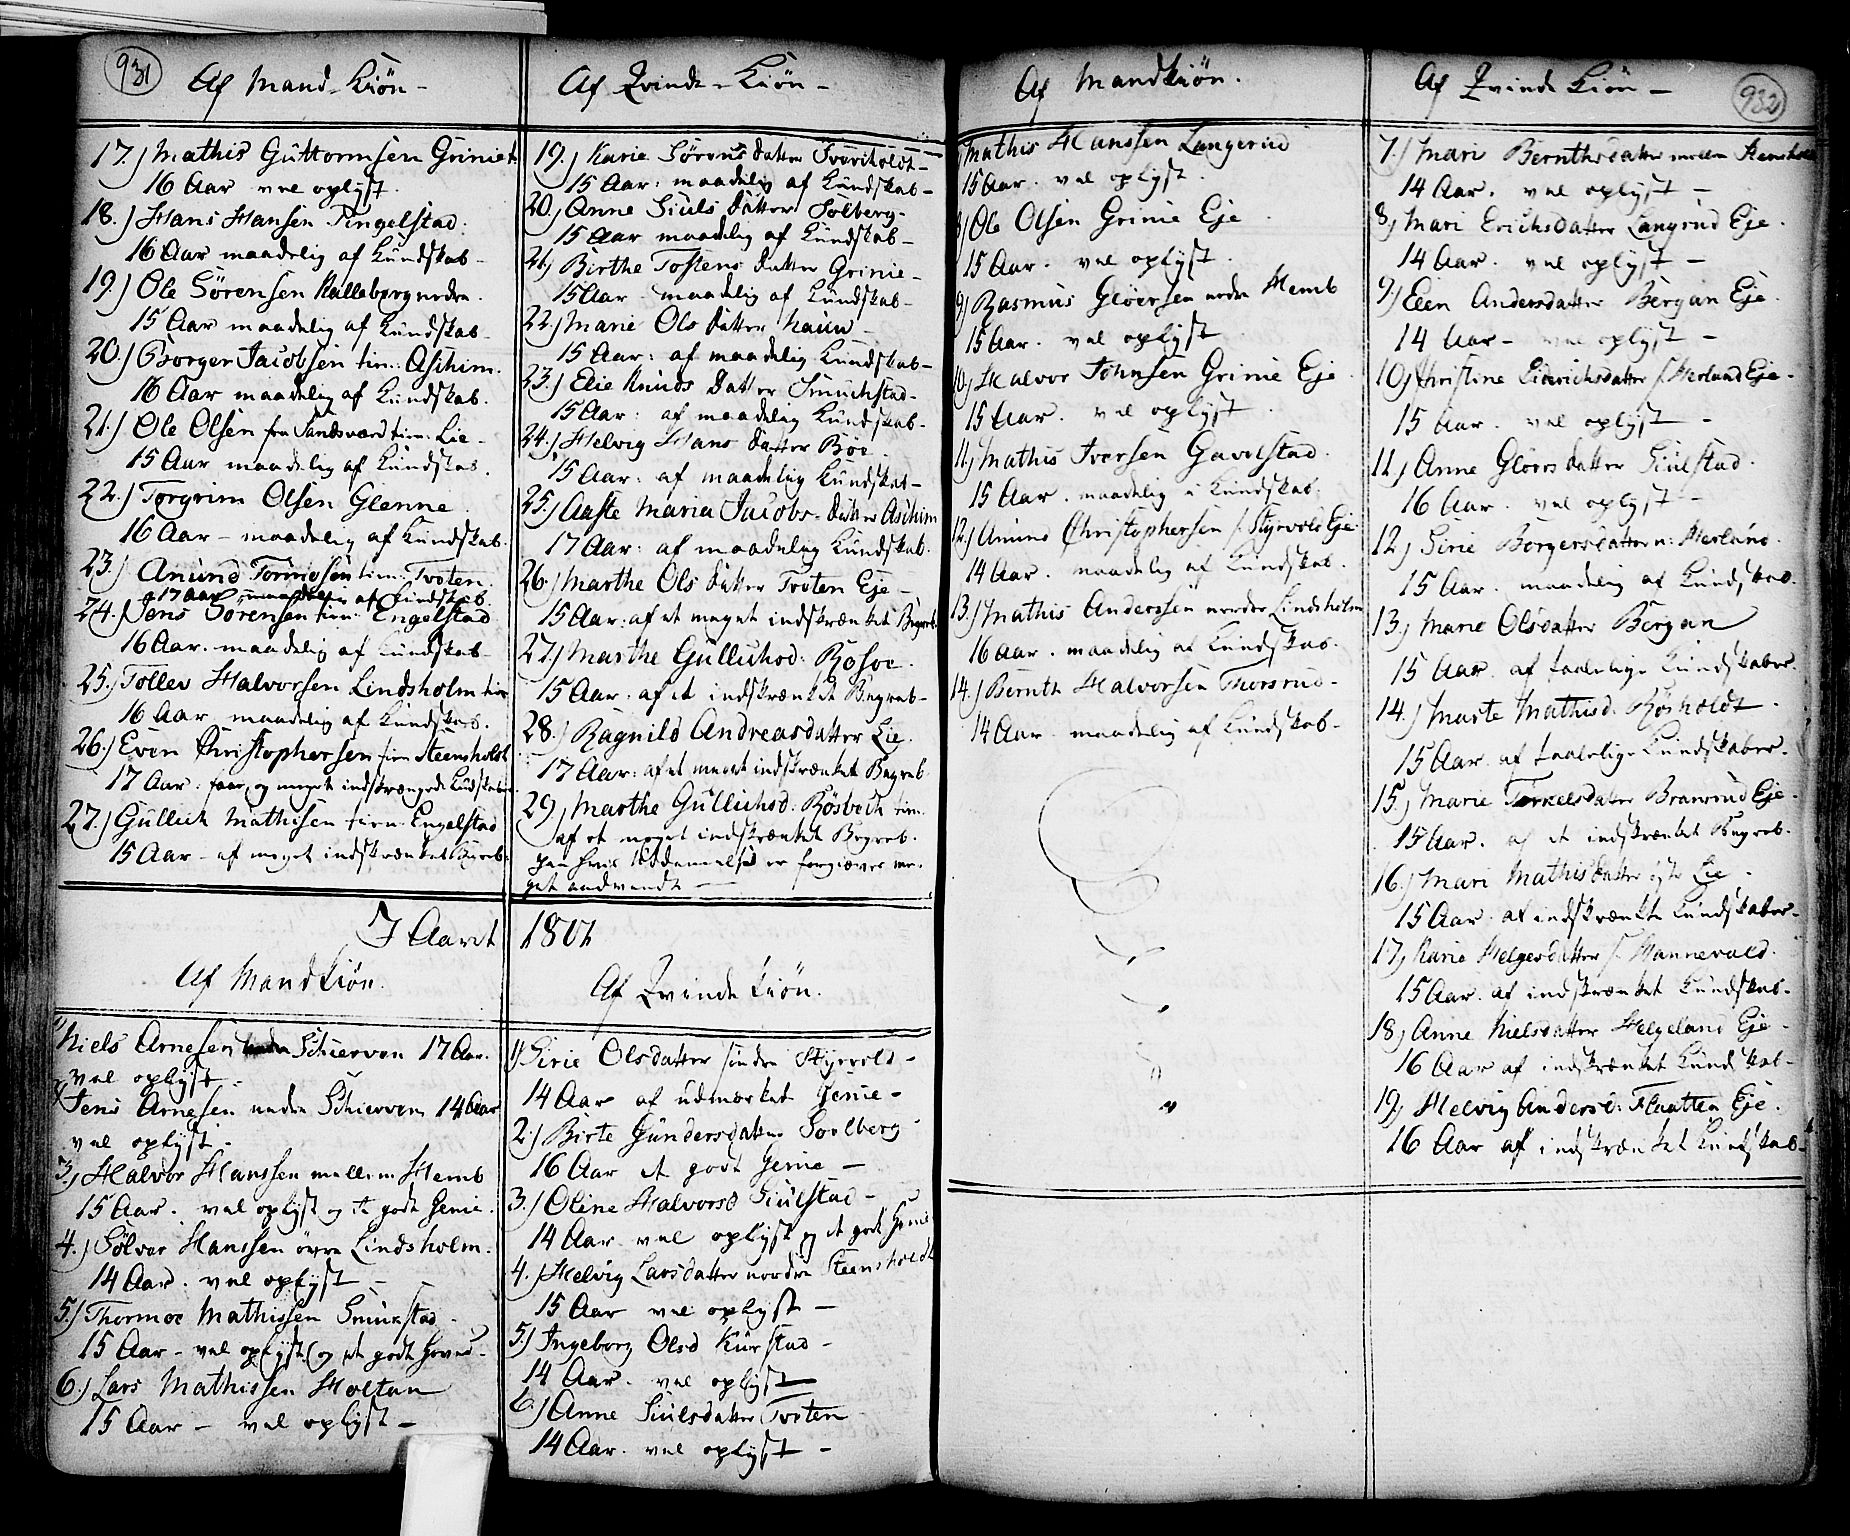 931
Af Mand-Kiön-
17.) Mathis Guttormsen Grinie
16 Aar vel oplyst.
18.) Hans Hansen Tingelstad.
16 Aar maadelig af Kundskab-
19.) Ole Sörensen Kalleberg nedre.
15 Aar maadelig af Kundskab-
20.) Borger Jacobsen tien: Aschim.
16 Aar maadelig af Kundskab.
21.) Ole Olsen fra Sandsværd tien: Lie-
15 Aar maadelig af Kundskab.
22.) Torgrim Olsen Glenne
16 Aar- maadelig af Kundskab.
23.) Anund Tormosen tien: Tvoten.
17 Aar maadelig af Kundskab.
24.) Jens Sörensen tien: Engelstad
16 Aar. maadelig af Kundskab-
25.) Tollev Halvorsen Lindsholm tien
16 Aar maadelig af Kundskab.
26.) Even Christophersen tien Steensholt
17 Aar: faae og meget indskrængede Kundskaber
27.) Gullich Mathisen tien: Engelstad
15 Aar- af meget indskrænket Begreb.
Af Qvinde-Kiön-
19.) Karie Sörens datter Tveritholdt-
15 Aar: maadelig af Kundskab-
20.) Anne Siuls datter Solberg-
15 Aar maadelig af Kundskab-
21.) Birthe Tostens datter Grinie-
15 Aar- maadelig af Kundskab-
22.) Marie Ols datter Haun-
15 Aar: af maadelig Kundskab-
23.) Elie Knuds datter Smuchstad-
15 Aar: af maadelig Kundskab-
24.) Helvig Hans datter Böe.
15 Aar: af maadelig Kundskab-
25.) Aaste Maria Jacobs-datter Aschim
17 Aar: af maadelig Kundskab.
26.) Marthe Ols datter Tvoten Eje-
15 Aar: af et meget indskrænket Begreb
27.) Marthe Gullichsd: Rosve.
15 Aar: af et indskrænket Begreb-
28.) Ragnild Andreasdatter Lie.
17 Aar: af et meget indskrænket Begreb
29.) Marthe Gullichsd: Rösbech tien.
af et meget indskrænket Begreb.
paa hvis Uddannelse er forgiæves me-
get andvendt-
I Aaret 1801
Af Mandkiön.
1) Niels Arnesen Schierven 17 Aar.
vel oplyst-
2) Jens Arnesen nedre Schierven 14 Aar
vel oplyst-
3.) Halvor Hanssen mellem Hemb
15 Aar. vel oplyst og et godt Genie.
4.) Sölver Hanssen övre Lindsholm.
14 Aar. vel oplyst-
5.) Thormoe Mathissen Smukstad-
15 Aar- vel oplyst og et godt Hoved-
6.) Lars Mathissen Holtan
15 Aar- vel oplyst-
Af Qvinde kiön.
1) Sirie Olsdatter söndre Styrvold-
14 Aar af udmærket Genie-
2.) Birte Gundersdatter Soelberg
16 Aar et godt Genie-
3.) Oline Halvorsd Siulstad-
14 Aar vel oplyst og et godt Genie
4.) Helvig Larsdatter nordre Steensholdt
15 Aar vel oplyst-
5.) Ingeborg Olsd Kiörstad-
14 Aar. vel oplyst-
6.) Anne Siulsdatter Tvoten
14 Aar. vel oplyst-
Af Mandkiön.
Mathis Hanssen Langerud
15 Aar. vel oplyst.
8) Ole Olsen Grinie Eje
15 Aar. vel oplyst.
9) Rasmus Glöersen nedre Hemb
15 Aar. vel oplyst
10.) Halvor Johnsen Grinie Eje
15 Aar. vel oplyst.
11.) Mathis Iversen Gavelstad.
15 Aar. maadelig i Kundskab.
12.) Amund Christophersen s. Styrvold Eje
14 Aar. maadelig af Kundskab.
13.) Mathis Anderssen nordre Lindsholm
16 Aar. maadelig af Kundskab.
14.) Bernth Halvorsen Thorsrud-
14 Aar. maadelig af Kundskab-
Af Qvinde Kiön-
932
7.) Mari Bernthsdatter mellem Steensholt
14 Aar. vel oplyst-
8.) Mari Erichsdatter Langrud Eje.
14 Aar. vel oplyst-
9.) Elen Andersdatter Bergan Eje.
14 Aar- vel oplyst-
10.) Christine Didrichsdatter s. Herland Eje-
15 Aar. vel oplyst-
11.) Anne Glöersdatter Siulstad.
16 Aar. vel oplyst-
12.) Sirie Borgersdatter n: Herland.
15 Aar. maadelig af Kundskab.
13.) Marie Olsdatter Bergan
15 Aar. af taalelige Kundskaber.
14.) Marte Mathisd. Rösholdt.
15 Aar. af taalelige Kundskaber.
15.) Marie Torkelsdatter Branrud Eje.
15 Aar. af et indskrænket Begreb.
16.) Mari Mathisdatter Lie.
15 Aar. af indskrænkte Kundskaber-
17.) Karie Helgesdatter s. Hannevold.
15 Aar. af indskrænket Kundskab-
18.) Anne Nielsdatter Helgeland Eje-
16 Aar af indskrænket Kundskab-
19.) Helvig Andersd: Flaatten Eje.
16 Aar af indskrænket Kundskab-